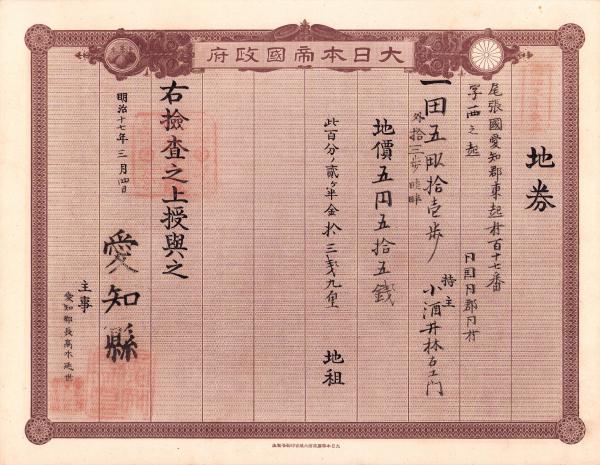 大日本帝國政府
地券
尾張國愛知郡東起村百十七番
字西之起
同國同郡同村
一田五畝拾壱歩
外拾三歩畦畔
持主
小酒井林右エ門
地價五円五拾五銭
此百分ノ貳ヶ半金拾三銭九厘
地租
右撿査之上授與之
明治十七年三月四日
愛知縣
主事
愛知郡長